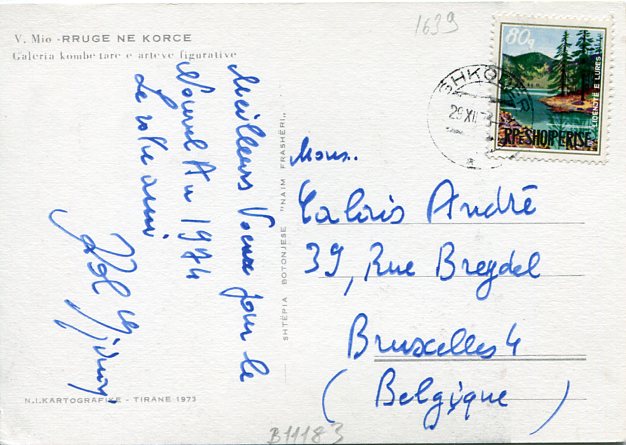 V. Mio -RRUGE NE KORCE
Galeria kombetare e arteve figurative
1639
80q
LIQENOTË E LURËS
RP E SHQIPËRISË
SHKODER
29 XII
Meilleurs Voeux pour le
Nouvel An 1974
de votre ami
SHTËPIA BOTONJESE "NAIM FRASHËRI"
Mons..
Calais André
39, Rue Breydel
Bruxelles 4
(Belgique)
N.I.KARTOGRAFIKE - TIRANE 1973
B11183